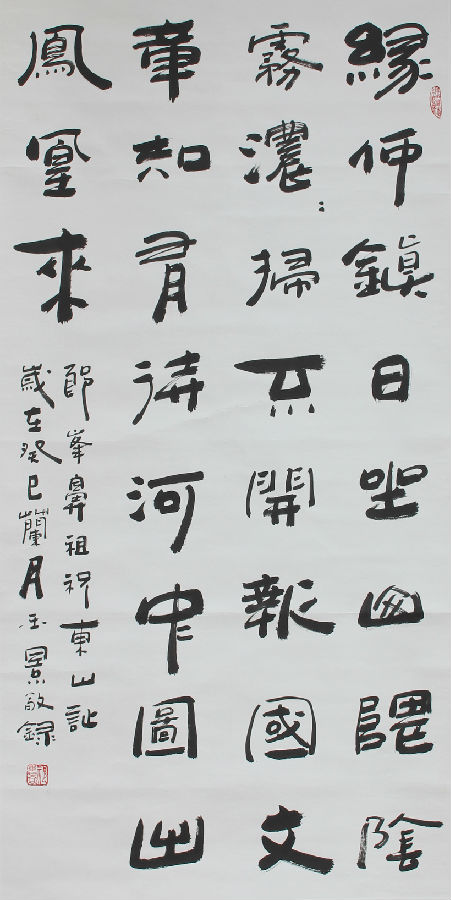 緣何鎮日坐山隈陰
霧濃：掃不開報國文
章知有待河中圖出
鳳凰來
郎峯鼻祖祝東山詩
歲在癸巳蘭月玉景敬錄